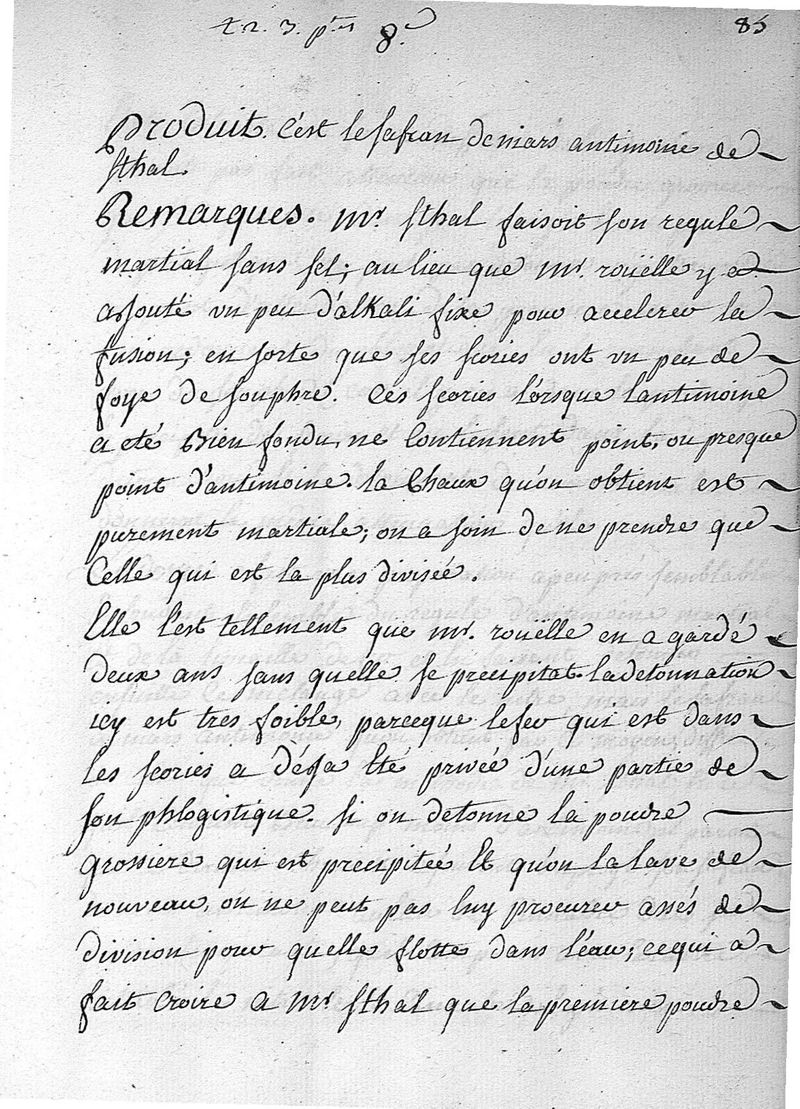 3. p.tes 8.e
85
Produit. C'est le safran de mars antimoine de
sthal.
Remarques. Mr. sthal faisoit son regule
martial sans sel; au lieu que Mr. rouëlle y a
ajouté un peu d'alkali fixe pour accelerer la
fusion; en sorte que ses scories ont un peu de
foye de souphre. Ces scories lorsque lantimoine
a eté Bien fondu, ne Contiennent point, ou presque
point d'antimoine. la Chaux qu'on obtient est
purement martiale; on a soin de ne prendre que
Celle qui est la plus divisée.
Elle l'est tellement que Mr. rouëlle en a gardé
deux ans sans quelle se precipitat. la detonnation
icy est tres foible, parceque le fer qui est dans
les scories a déja Eté privée d'une partie de
son phlogistique. si on detonne la poudre
grossiere qui est precipitée Et qu'on la lave de
nouveau, on ne peut pas luy procurer assés de
division pour quelle flotte dans l'eau; ce qui a
fait croire a Mr sthal que la premiere poudre